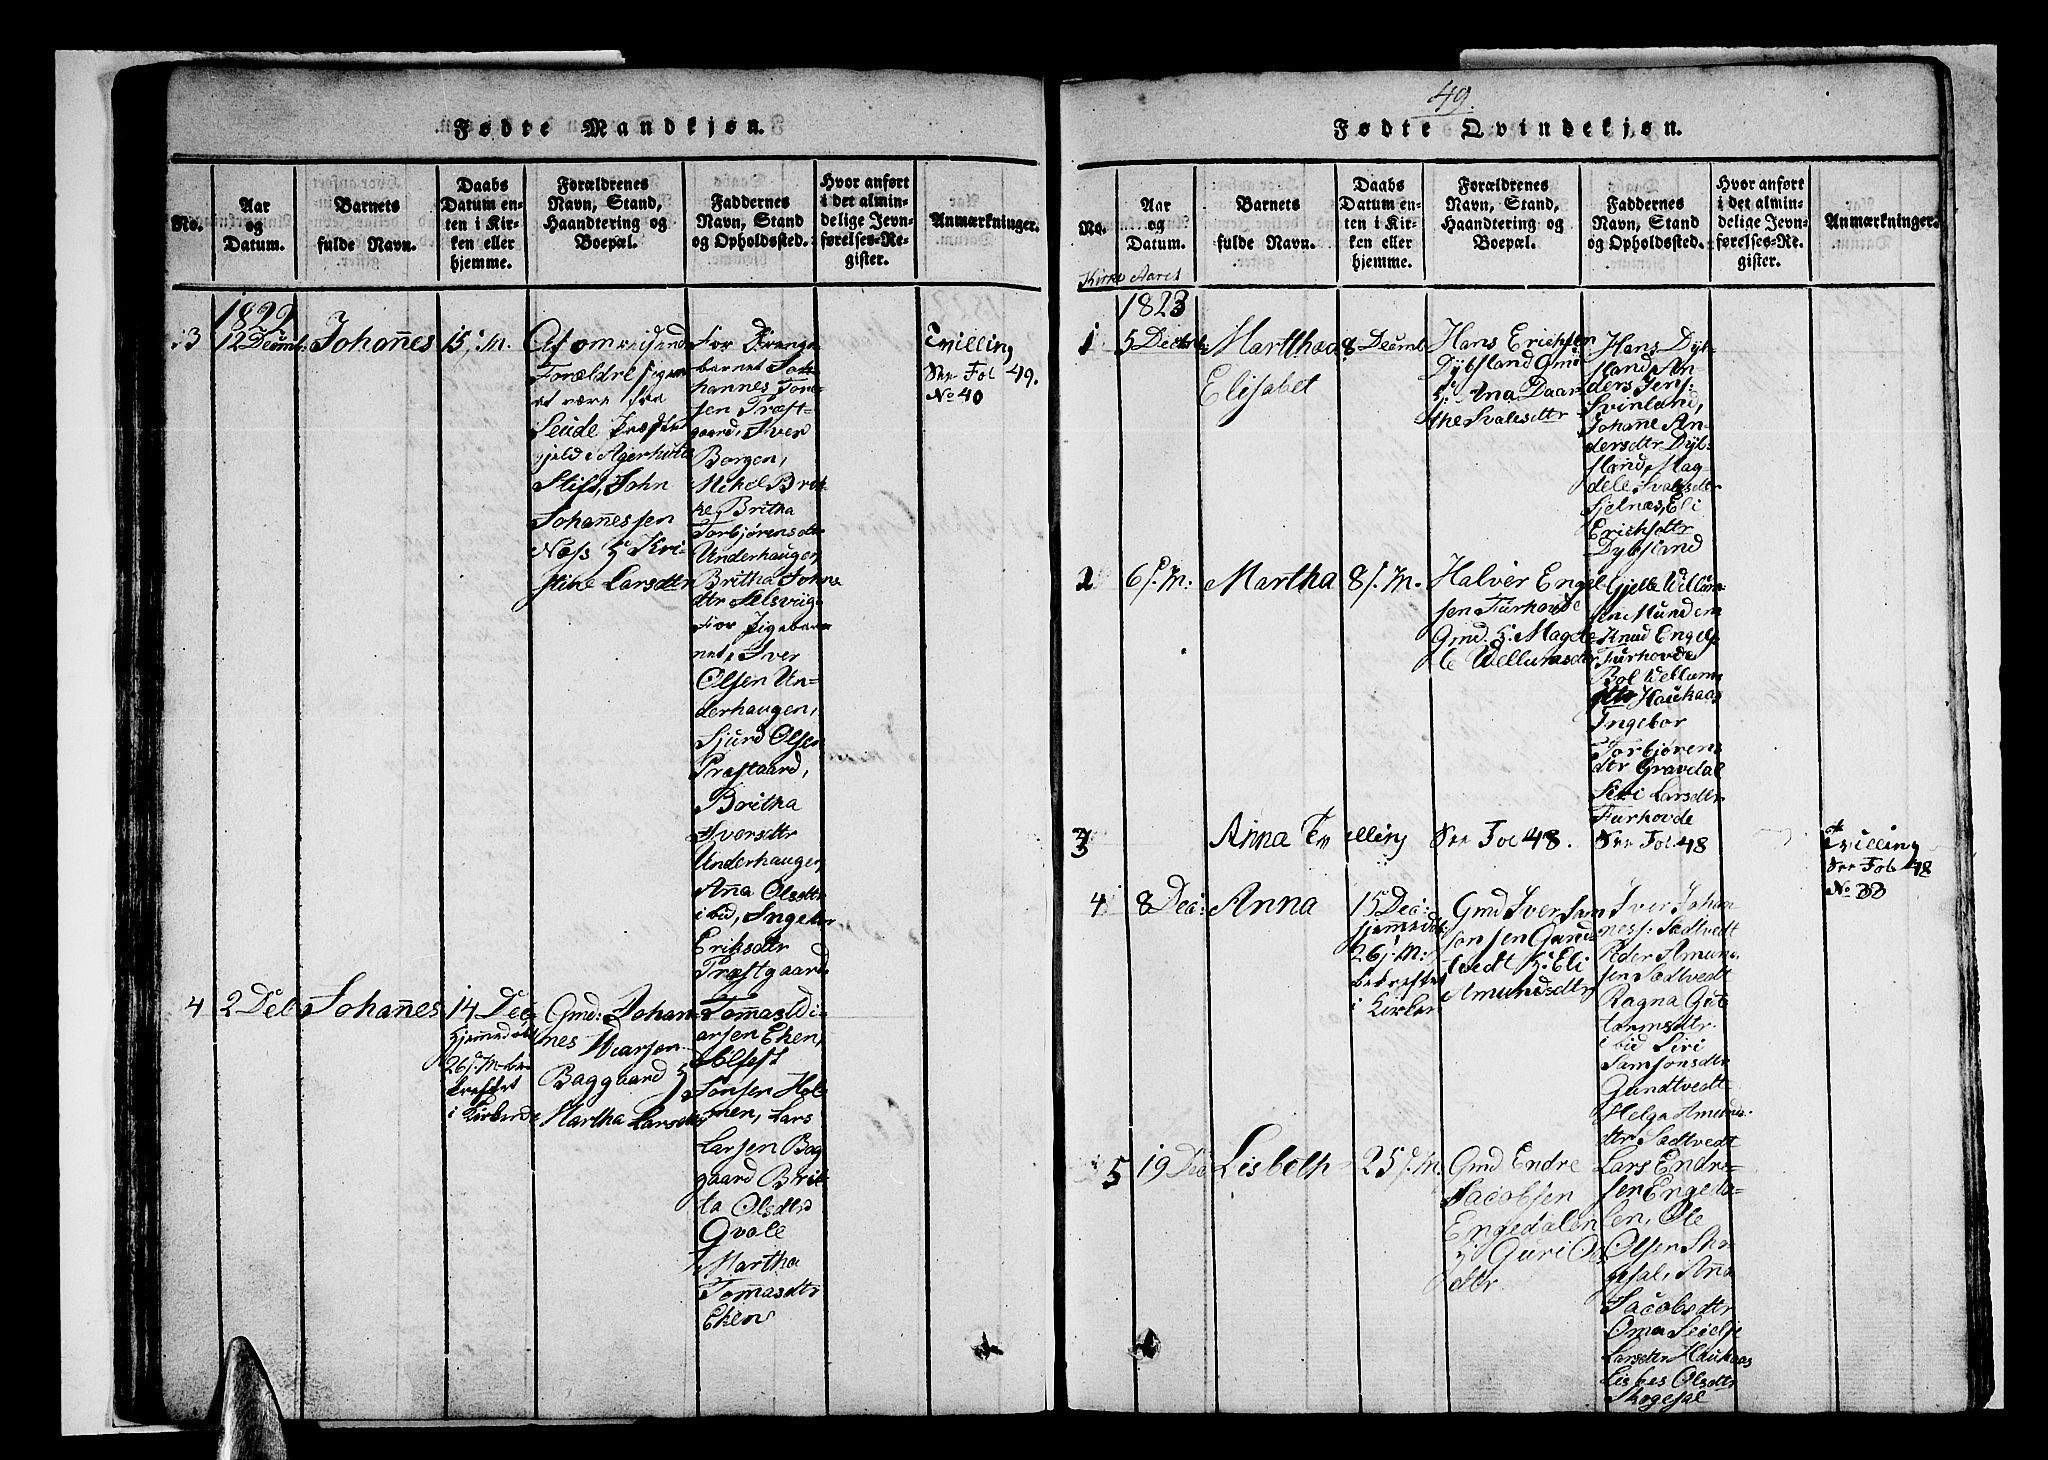 Fødte Mandkjøn.
No.
Aar
og
Datum.
Barnets
fulde Navn.
Daabs
Datum en-
ten i Kir-
ken eller
hjemme.
Forældrenes
Navn, Stand,
Haandtering og
Boepæl.
Faddernes
Navn, Stand
og Opholdssted.
Hvor anført
i det almin-
delige Jevn-
førelses-Re-
gister.
Anmærkninger.
1822
3
12 Decmb:
Johan̄es
15 j. M.
Af omreisend
Forældre
at være fra
Præste
gjeld i Agerhuus
Stift, John
Johan̄essen
Næss H: Kri-
stine Larsdtr
For Drenge
barnet Jo-
hannes Tore-
sen Præst-
gaard, Iver
Borgen,
Mikel Brek-
ke, Britha
Torbjørensdtr
Underhaugen,
Britha Johne
dtr Selsviig
For Pigebarn
net, Iver
Olsen Un-
derhaugen,
Sjurd Olsen
Præstaard,
Britha
Iversdtr
Underhaugen,
An̄a Olsdtr
ibid, Ingebor
Eriksdtr
Præstgaard
Tvilling
See Fol 49.
No 40
4
2 Dec
Johan̄es
14 Dec
hjemmedøbt
26 j. M. be-
kreftet
i Kirken
Gmd: Johan
nes Klarsen
Baggaard H
Martha Larsdtr
Tom̄as Di-
arsen Eken,
Tolfest
Jonsen Hol
men, Lars
Larsen Bag
gaard Brit-
ta Olsdtr
Qvale
Martha
Tom̄asdtr
Eken
49.
Fødte Qvindekjøn.
No.
Aar
og
Datum.
Barnets
fulde Navn.
Daabs
Datum en-
ten i Kir-
ken eller
hjemme.
Forældrenes
Navn, Stand,
Haandtering og
Boepæl.
Faddernes
Navn, Stand
og Opholdssted.
Hvor anført
i det almin-
delige Jevn-
førelses-Re-
gister.
Anmærkninger.
Kirke Aaret
1823
1
5 Decmb:
Marthaa
Elisabet
8 Decmb
Hans Erichsen
Dybsland Gmd
H: Ana Daar-
the Svalesdtr
Hans Dyb-
sland An-
ders Jens:
Svinland,
Johane An-
dersdtr Dyb-
sland, Mag-
dele Svalesdtr
Sjelnes, Eli
Erichsdtr
Dybsland
2
6 j. M:
Martha
8 j. M.
Halver Engel
sen Furhovde
Gmd. H: Magde
le Vellumsdtr
Gjelle Villum
sen Munden
Knud Engels
Furhovde
Bol Vellums
dtr Haukaas
Ingebor
Torbjørens
dtr Gravdal
Siri Larsdtr
Furhovde
3
Anna Tvilling
See Fol 48.
See Fol 48
Tvilling
See Fol 48
No 33
4
8 Dec:
Anna
15 Dec:
hjemmedøbt
26 j. M:
bekreftet
i Kirken
Gmd Iver Sam
sonsen Gund
tvedt H: Eli
Amundsdtr
Iver Johan
ness: Sædtvedt
Peder Amund
sen Sædtvedt
Ragna Gut
tormsdtr
ibid Siri
Samsonsdtr
Gundtvedt
Helga Amunds
dtr Sædtvedt
5
19 Dec
Lisbeth
25 j. M.
Gmd Endre
Jacobsen
Engedalen
H: Guri Ols
dtr
Lars Endre-
sen Engeda-
len, Ole
Olsen Ske-
gsal, An̄a
Jacobsdtr
Oma Seidele
Larsdtr Haukaas
Lisbes Olsdtr
Skogesal